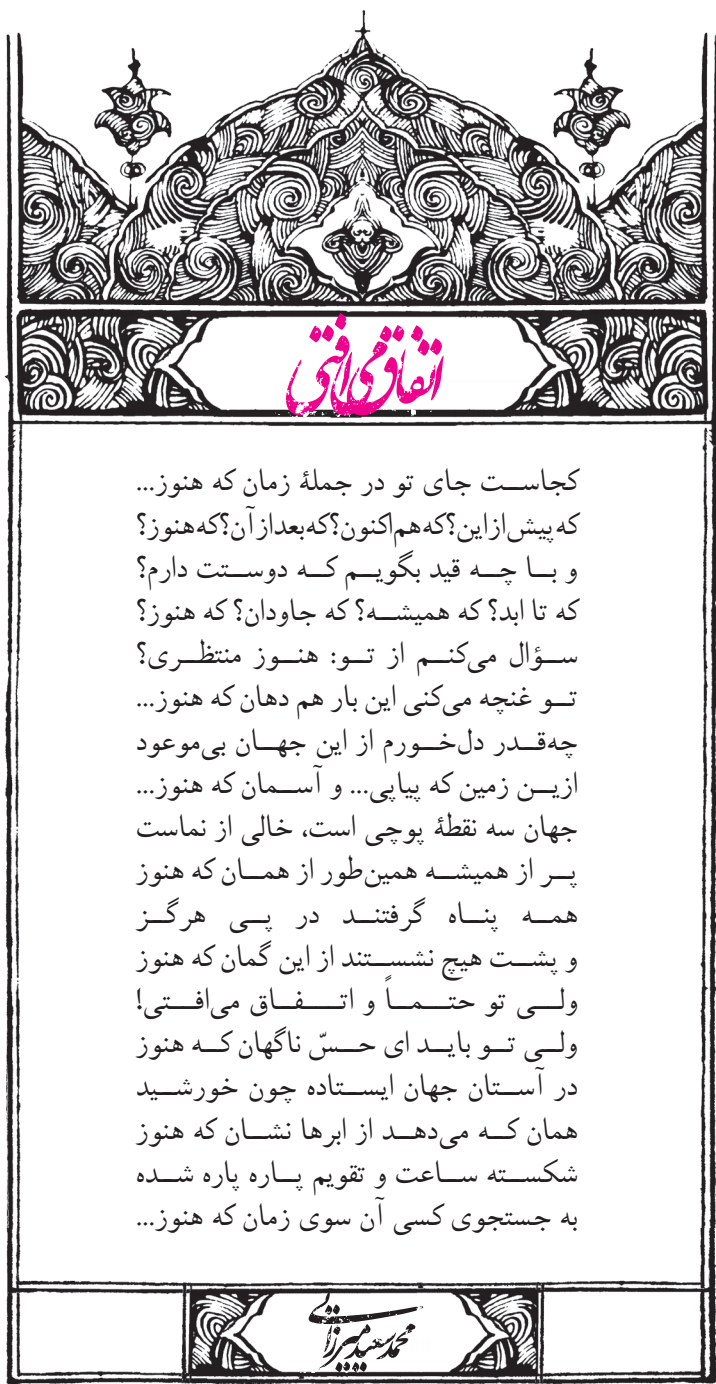 اتفاق می‌افتی
کجاست جای تو در جملهٔ زمان که هنوز...
که پیش از این؟ که هم‌اکنون؟ که بعد از آن؟ که هنوز؟
و با چه قید بگویم که دوستت دارم؟
که تا ابد؟ که همیشه؟ که جاودان؟ که هنوز؟
سؤال می‌کنم از تو: هنوز منتظری؟
تو غنچه می‌کنی این بار هم دهان که هنوز...
چه‌قدر دل‌خورم از این جهان بی‌موعود
ازین زمین که پیاپی... و آسمان که هنوز...
جهان سه نقطهٔ پوچی است، خالی از نماست
پر از همیشه همین‌طور از همان که هنوز
همه پناه گرفتند در پی هرگز
و پشت هیچ نشستند از این گمان که هنوز
ولی تو حتماً و اتفاق می‌افتی!
ولی تو باید ای حسّ ناگهان که هنوز
در آستان جهان ایستاده چون خورشید
همان که می‌دهد از ابرها نشان که هنوز
شکسته ساعت و تقویم پاره پاره شده
به جستجوی کسی آن سوی زمان که هنوز...
محمدسعید میرزائی